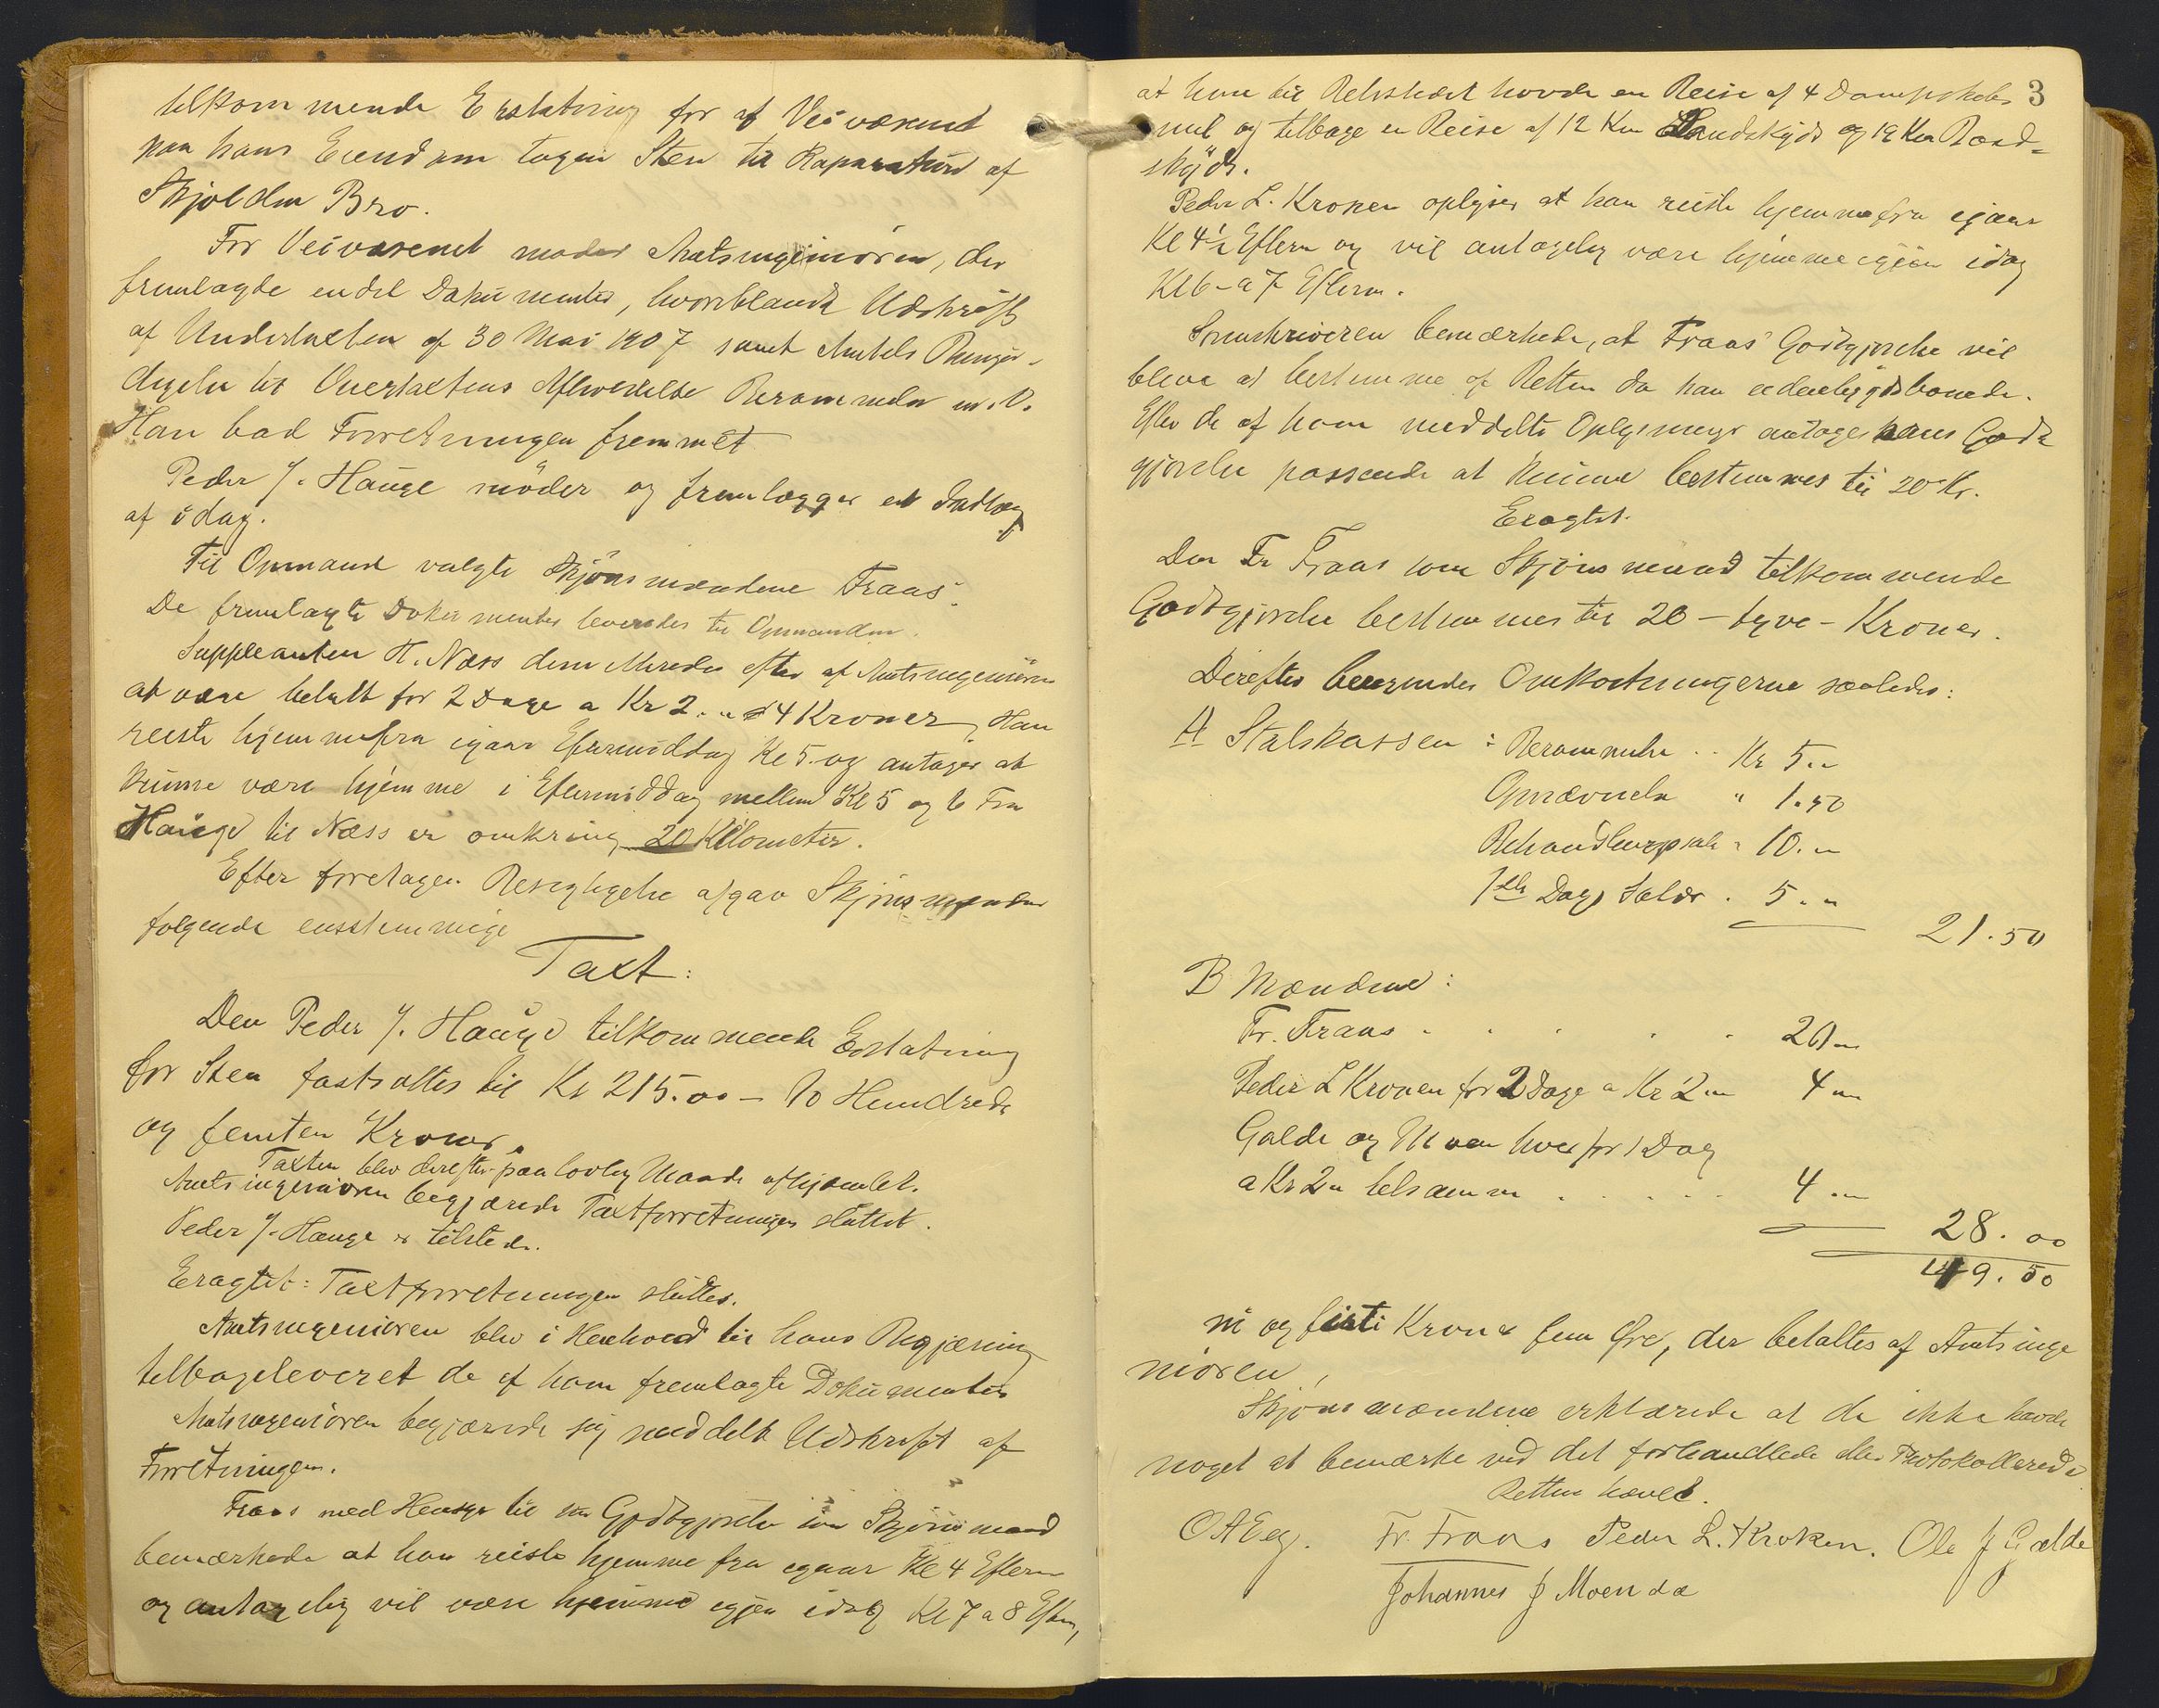 tilkommende Erstatning for af Veivæsenet
paa hans Eiendom tagen Sten til Reparation af
Skjolden Bro.
For Veivæsenet møder Amtsingeniøren, der
fremlagde endel Dokumenter, hvoriblandt Udskrift
af Undertaxten af 30 Mai 1907 samt Amtets
til Overtaxtens Afholdelse Berammelse m. v.
Han bad Forretningen fremmet
Peder J. Hauge möder og fremlægger et Indlæg
af idag.
Til Opmand valgte Skjønsmændene Fraas.
De fremlagte Dokumenter leveredes til Opmanden.
Suppleanten H. Næss efter af Amtsingeniøren
at være betalt for 2 Dage a Kr 2. " 4 Kroner, Han
reiste hjemmefra igaar Eftermiddag Kl 5. og antager at
kunne være hjemme i Eftermiddag mellem Kl 5 og 6 Fra
Hauge til Næss er omkring 20 Kilometer.
Efter foretagen Besigtigelse afgav Skjønsmænden
følgende enstemmige
Taxt:
Den Peder J. Hauge tilkommende Erstatning
for Sten fastsattes til Kr 215.00 – To Hundrede
og femten Kroner.
Taxten blev derefter paa lovlig Maade afhjemlet.
Amtsingeniøren begjærede Taxtforretningen sluttet.
Peder J. Hauge er tilstede.
Eragtet: Taxtforretningen sluttes.
Amtsingeniøren blev i Henhold til hans Begjæring
tilbageleveret de af ham fremlagte Dokumenter
Amtsingeniøren begjærede sig meddelt Udskrift af
Forretningen.
Fraas med Hensyn til sin Godtgjørelse som Skjønsmand
bemærkede at han reiste hjemme fra igaar Kl 4 Efterm
og antagelig vil være hjemme igjen idag Kl 7 a 8 Efterm,
3
at han til Retsstedet havde en Reise af 4 Dampskibs
mil og tilbage en Reise af 12 Km Landskyds og 19 Km Baad-
skyds.
Peder L. Kroken oplyser at han reiste hjemmefra igaar
Kl 4½ Efterm og vil antagelig være hjemme igjen idag
Kl 6 – a 7 Efterm.
Sorenskriveren bemærkede, at Fraas' Godtgjørelse vil
blive at bestemme af Retten da han er
Efter de af ham meddelte Oplysninger antages hans Godt
gjørelse passende at kunne bestemmes til 20 Kr.
Eragtet.
Den Fr Fraas som Skjønsmand tilkommende
Godtgjørelse bestemmes til 20 – tyve – Kroner.
Derefter beregnedes Omkostningerne saaledes:
A Statskassen: Berammelse .. Kr 5. "
Opnævnelse " 1.50
Behandlingssal " 10. "
1ste Dags Salær . 5. "
21.50
B Mændene:
Fr. Fraas . . . . . 20 "
Peder L Kroken for 2 Dage a Kr 2 " 4 "
Galde og Moen hver for 1 Dag
a Kr 2 " tilsammen . . . . . 4. "
28.00
49.50
ni og firti Kroner fem Øre, der betaltes af Amtsinge
niøren,
Skjønsmændene erklærede at de ikke havde
noget at bemærke ved det forhandlede eller Protokollerede
Retten hævet.
O A Eeg. Fr. Fraas Peder L. Kroken. Ole J Galde
Johannes J Moen